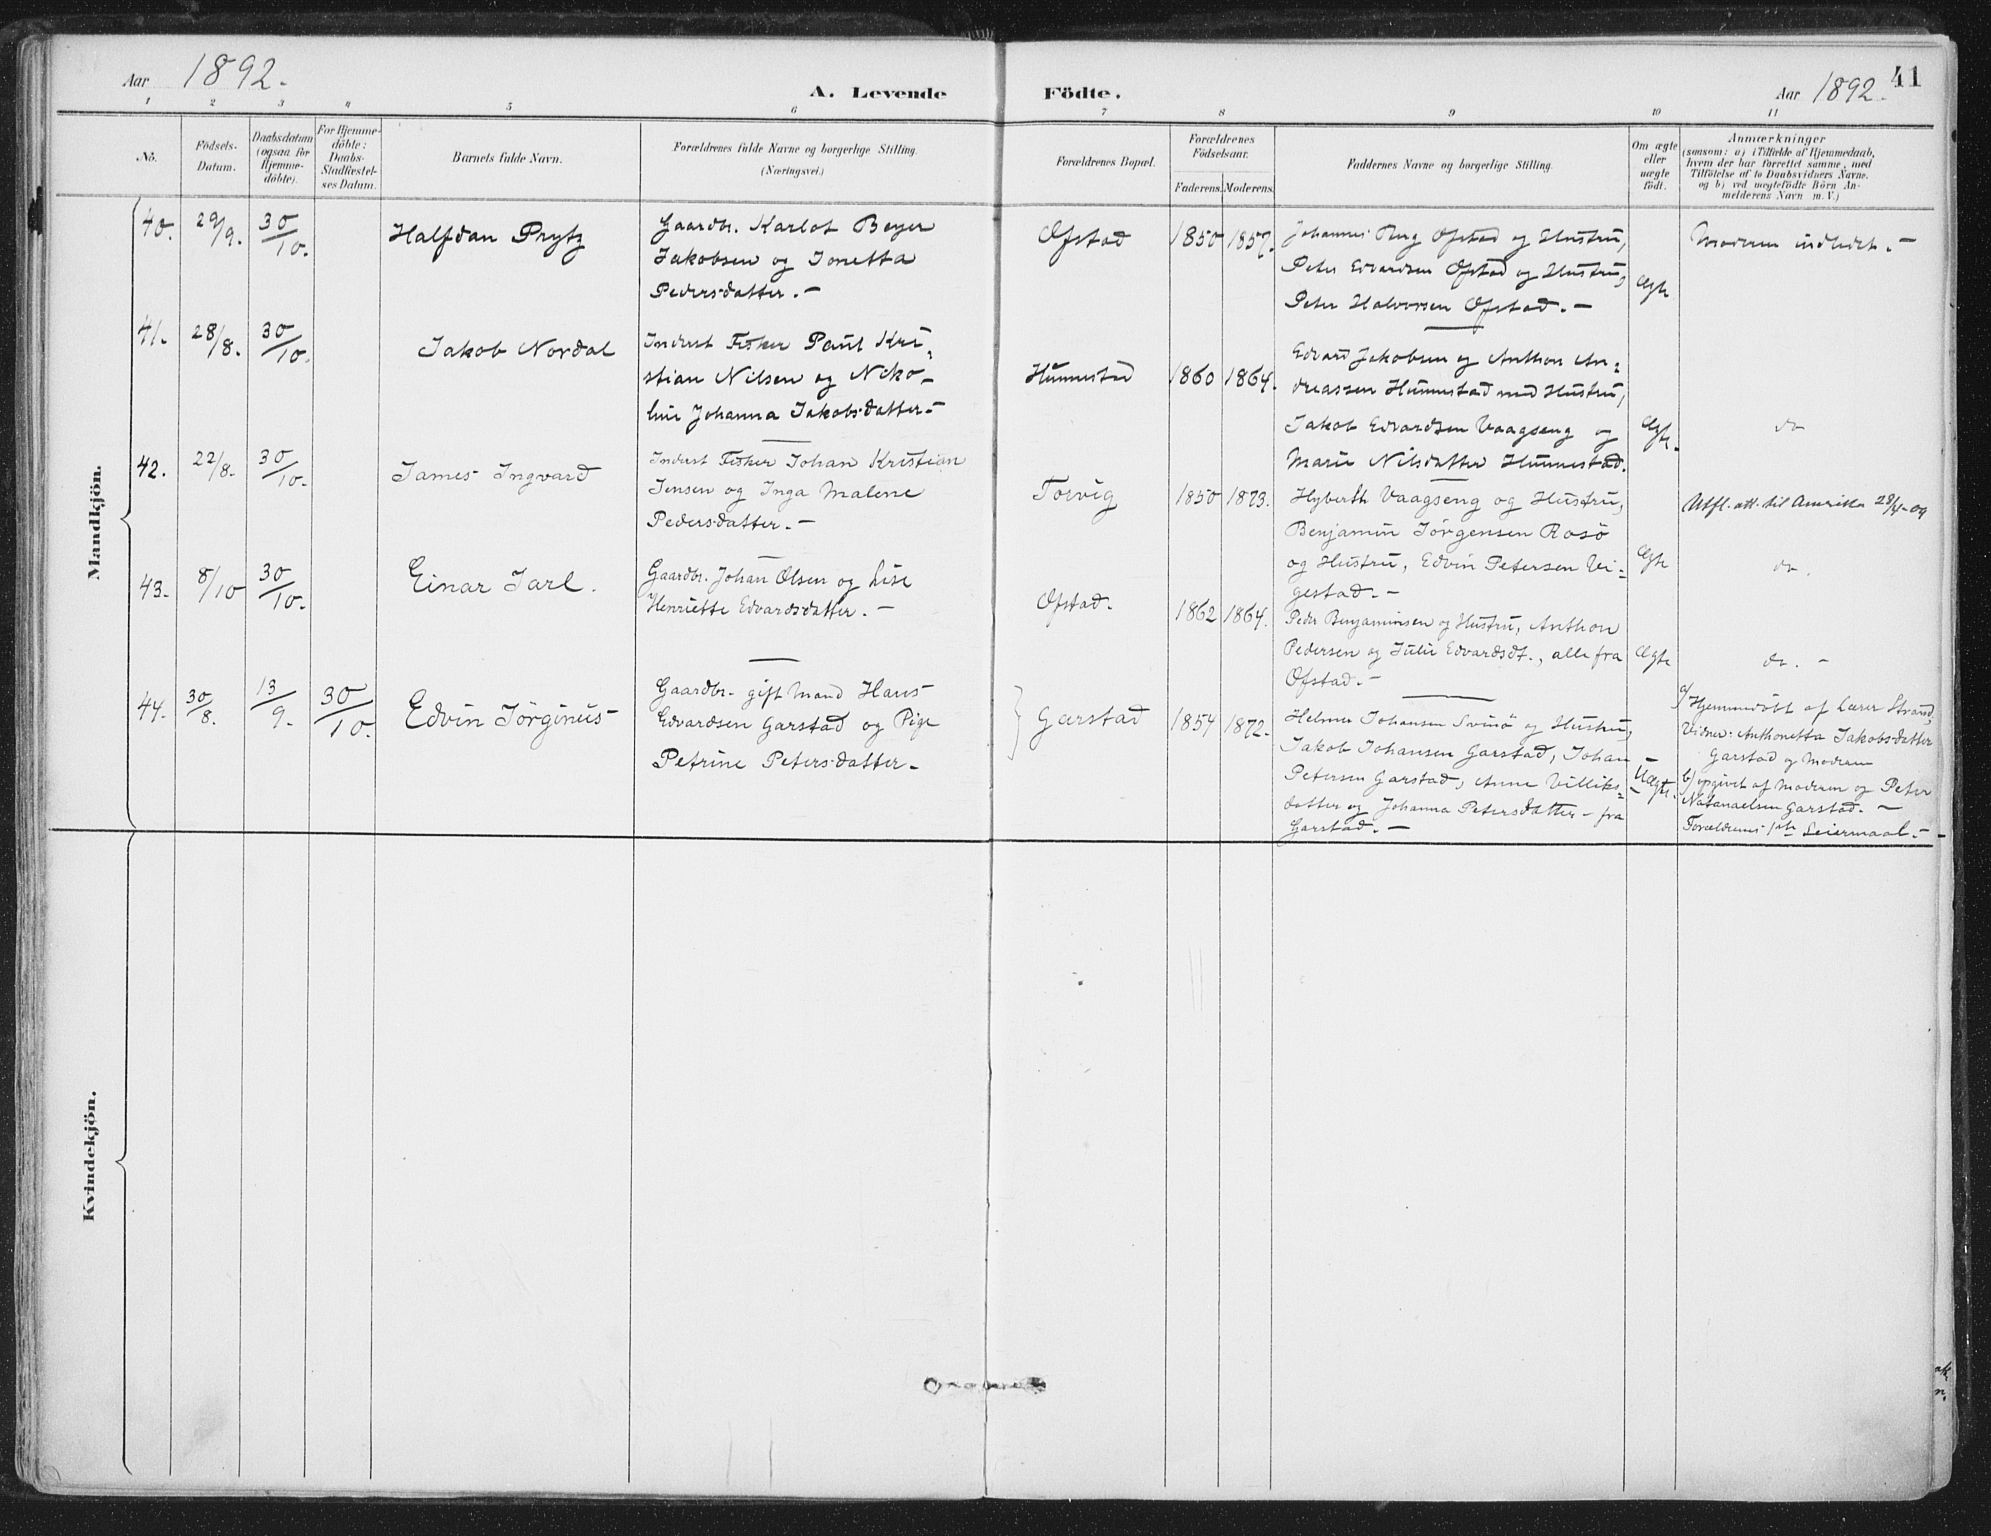 Aar 1892.
A. Levende Födte.
Aar 1892.
41
1 2 3 4 5 6 7 8 9 10 11
No.
Födsels-
Datum.
Daabsdatum
(ogsaa for
Hjemme-
döbte).
For Hjemme-
döbte:
Daabs-
Stadfæstel-
ses Datum.
Barnets fulde Navn.
Forældrenes fulde Navne og borgerlige Stilling.
(Næringsvei.)
Forældrenes Bopæl.
Forældrenes
Födselsaar.
Faderens. Moderens.
Faddernes Navne og borgerlige Stilling.
Om ægte
eller
uægte
födt.
Anmærkninger
(saasom: a) i Tilfælde af Hjemmedaab,
hvem der har forrettet samme, med
Tilföielse af to Daabsvidners Navne.
og b) ved uægtefödte Börn An-
melderens Navn m. V.)
Mandkjön.
40. 29/9. 30/10. Halfdan Prytz
Gaardbr. Karlot Beyer
Jakobsen og Jonetta
Pedersdatter. -
Ofstad 1850 1857.
Johannes Ofstad og Hustru,
Peter Edvardsen Ofstad og Hustru,
Peter Halvorsen Ofstad. -
Ægte
Moderen indledet. -
41. 28/8. 30/10. Jakob Nordal
Inderst Fisker Paul Kri-
stian Nilsen og Niko-
line Johanna Jakobsdatter. -
Hunnestad 1860 1864.
Edvard Jakobsen og Anthon An-
dreassen Hunnestad med Hustru,
Jakob Edvardsen Vaagseng og
Marie Nilsdatter Hunnestad.
Ægte.
do
42. 22/8. 30/10. James Ingvard
Inderst Fisker Johan Kristian
Jensen og Inga Malene
Pedersdatter. -
Torvig 1850 1873.
Hyberth Vaagseng og Hustru,
Benjamin Jörgensen Rosö
og Hustru, Edvin Petersen Vi-
gestad. -
Ægte
Utfl. att. til Amerika 28/4-09
do.
43. 8/10 30/10. Einar Jarl.
Gaardbr. Johan Olsen og Lise
Henriette Edvardsdatter. -
Ofstad. 1862 1864.
Peder Benjaminsen og Hustru, Anthon
Pedersen og Julie Edvardsdt., alle fra
Ofstad. -
Ægte
do. -
44. 30/8. 13/9. 30/10. Edvin Jörginus
Gaardbr. gift Mand Hans
Edvardsen Garstad og Pige
Petrine Petersdatter. -
Garstad 1854 1872.
Helmer Johansen Svinö og Hustru,
Jakob Johansen Garstad, Johan
Petersen Garstad, Anne Villiks-
datter og Johanna Petersdatter - fra
Garstad. -
Uægte.
a/ Hjemmedöbt af Lærer Strand,
Vidner: Anthonetta Jakobsdatter
Garstad og Moderen
b/ opgivet af Moderen og Peter
Natanaelsen Garstad. -
Forældrenes 1ste Leiermaal. -
Kvindekjön.